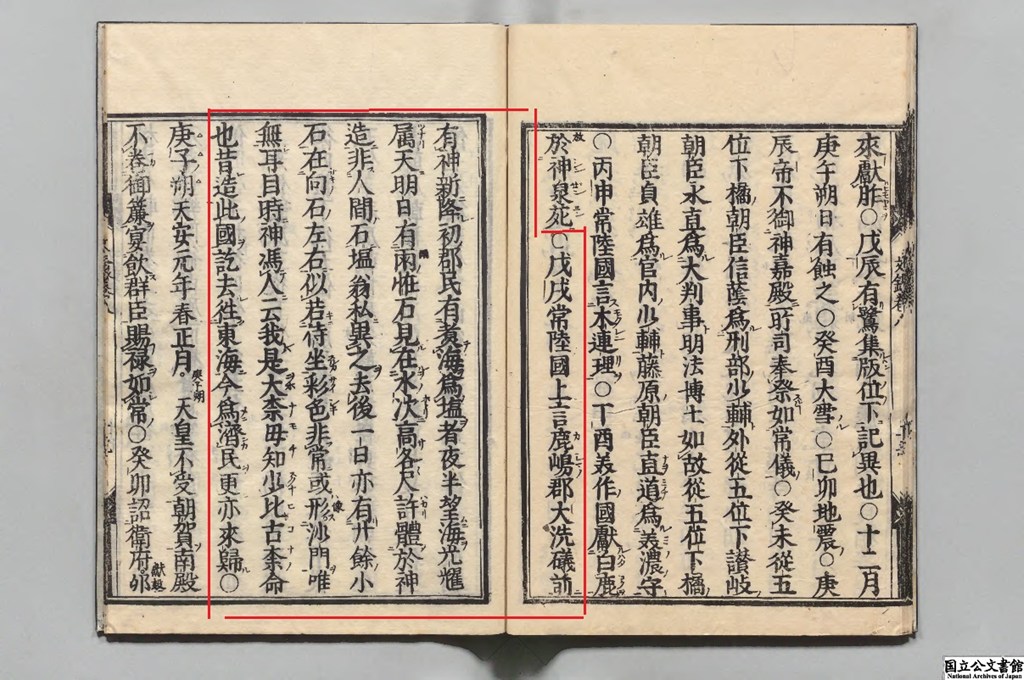 來獻胙○戊辰有鷺集版位下記異也○十二月
庚午朔日有蝕之○癸酉大雪○己卯地震○庚
辰帝不御神嘉殿所司奉祭如常儀○癸未從五
位下橘朝臣信蔭爲刑部少輔外從五位下讃岐
朝臣永直爲大判事明法博士如故從五位下橘
朝臣貞雄爲宮内少輔藤原朝臣直道爲美濃守
○丙申常陸國言木連理○丁酉美作國獻白鹿
放
於神泉苑○戊戌常陸國上言鹿嶋郡大洗礒前
有神新降初郡民有煮海爲塩者夜半望海光耀
属天明日有兩恠石見在水次高各尺許體於神
造非人間石塩翁私異之去後一日亦有廿餘小
石在向石左右似若侍坐彩色非常或形沙門唯
無耳目時神馮人云我是大奈毋知少比古奈命
也昔造此國訖去往東海今爲濟民更亦來歸○
庚子朔天安元年春正月。天皇不受朝賀南殿
庚子朔
不巻御簾宴飲群臣賜禄如常○癸卯詔衛府。卯
獻
国立公文書館
National Archives of Japan